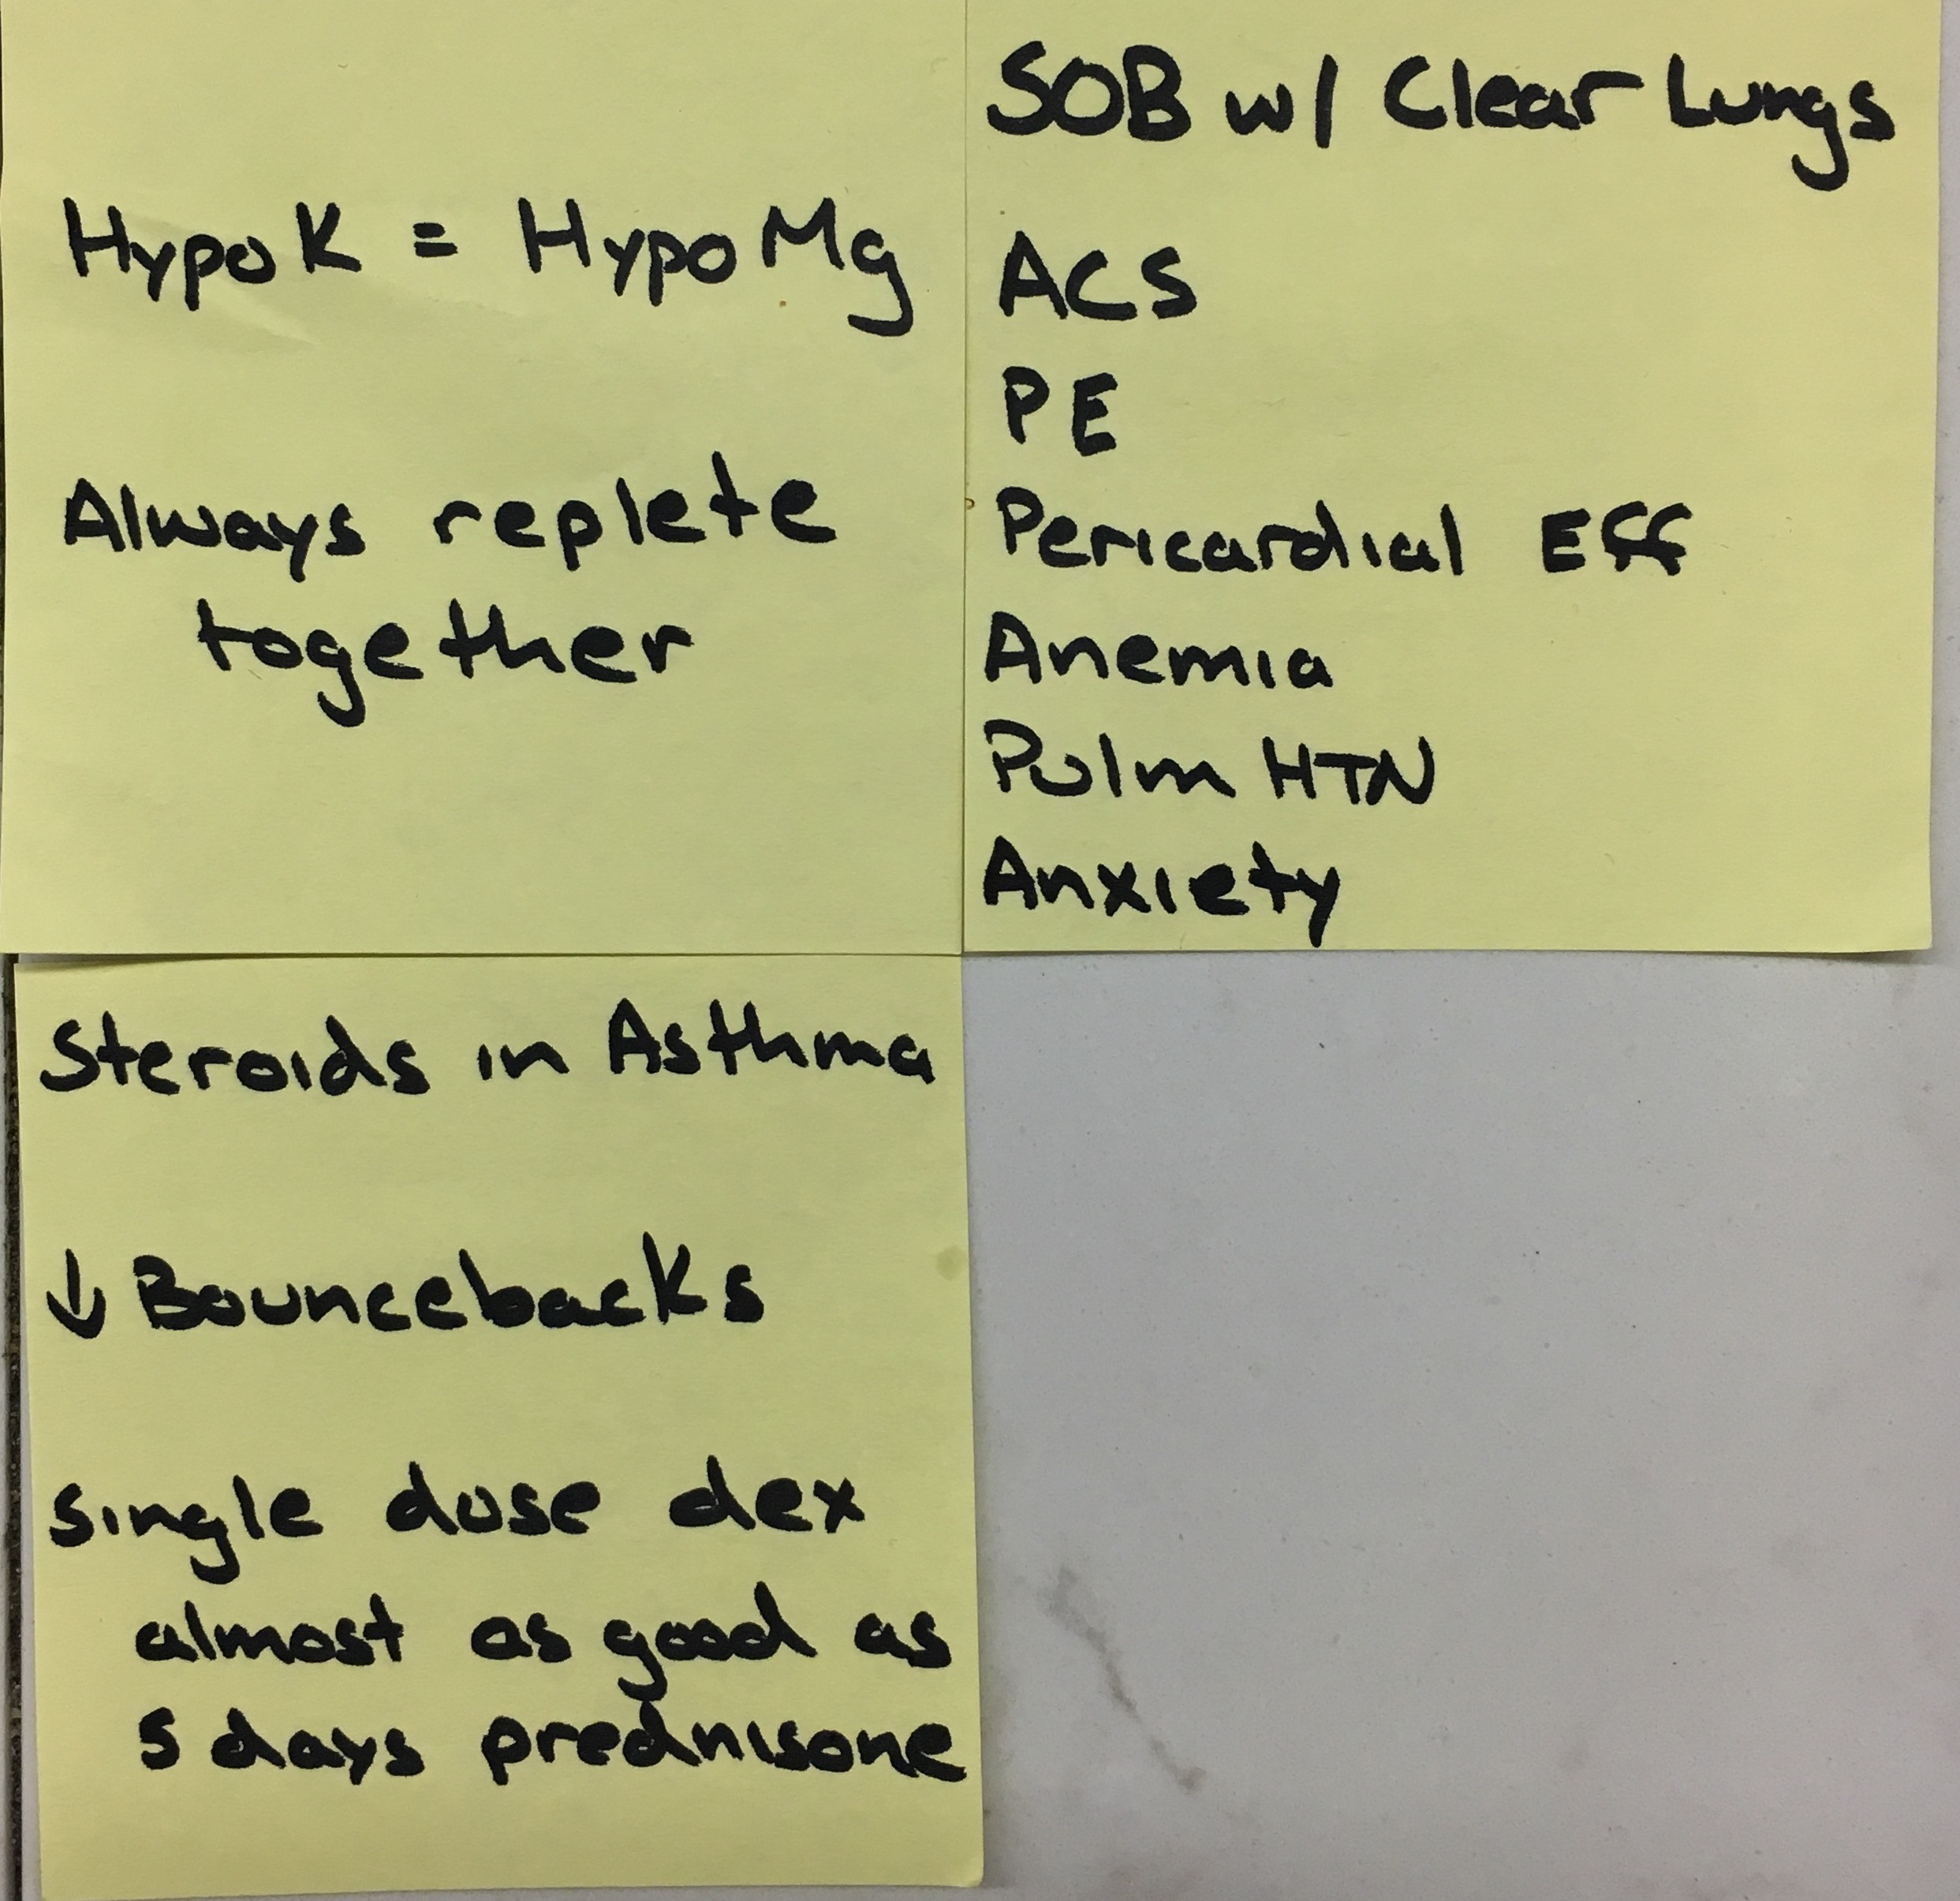 HypoK = HypoMg
Always replete
together
SOB w/ Clear Lungs
ACS
PE
Pericardial Eff
Anemia
Pulm HTN
Anxiety
Steroids in Asthma
↓ Bouncebacks
single dose dex
almost as good as
5 days prednisone